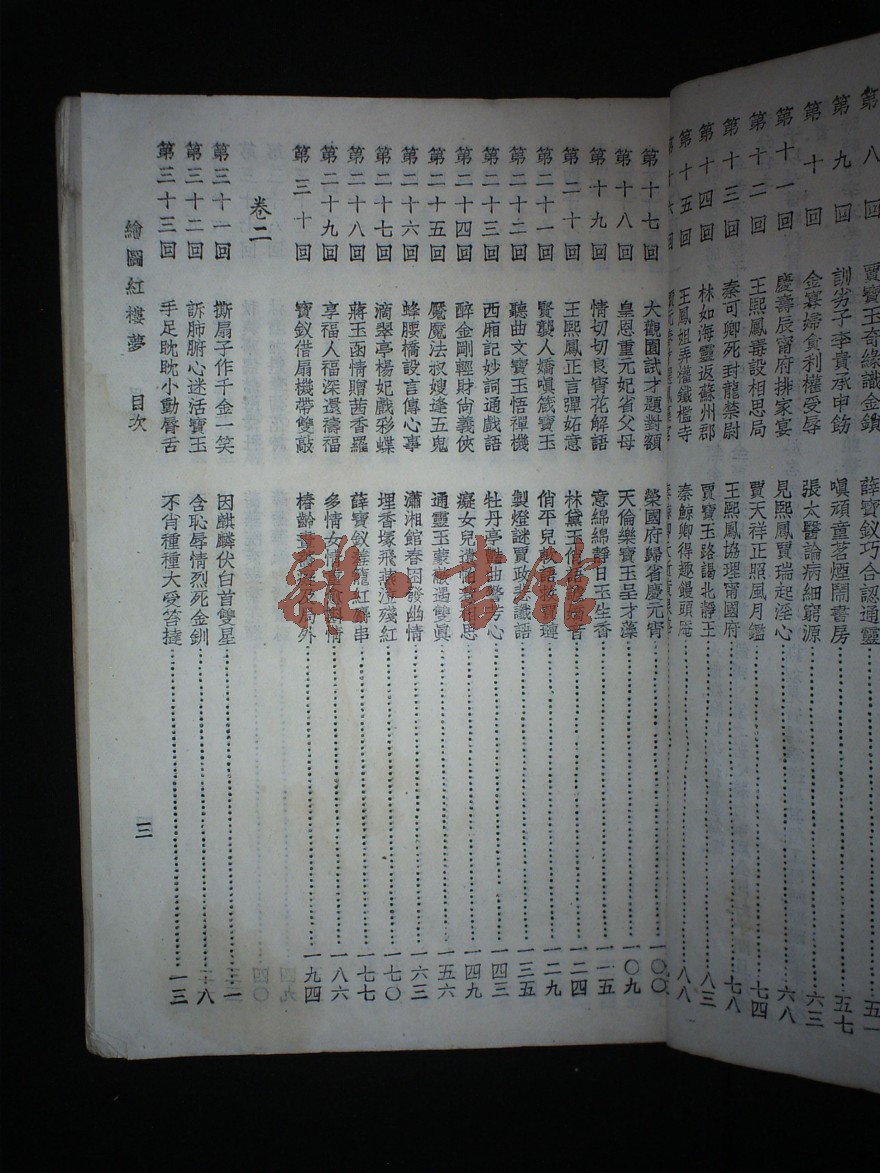 第八回 賈寶玉奇緣識金鎖 薛寶釵巧合認通靈 五一
第九回 訓劣子李貴承申飭 嗔頑童茗煙鬧書房 五七
第十回 金寡婦貪利權受辱 張太醫論病細窮源 六三
第十一回 慶壽辰甯府排家宴 見熙鳳賈瑞起淫心 六八
第十二回 王熙鳳毒設相思局 賈天祥正照風月鑑 七四
第十三回 秦可卿死封龍禁尉 王熙鳳協理甯國府 七八
第十四回 林如海靈返蘇州郡 賈寶玉路謁北靜王 八三
第十五回 王鳳姐弄權鐵檻寺 秦鯨卿得趣饅頭庵 八八
第十六回
第十七回 大觀園試才題對額 榮國府歸省慶元宵 一〇〇
第十八回 皇恩重元妃省父母 天倫樂寶玉呈才藻 一〇九
第十九回 情切切良宵花解語 意綿綿靜日玉生香 一一五
第二十回 王熙鳳正言彈妬意 林黛玉 一二四
第二十一回 賢襲人嬌嗔箴寶玉 俏平兒軟語 一二九
第二十二回 聽曲文寶玉悟禪機 製燈謎賈政悲讖語 一三五
第二十三回 西廂記妙詞通戲語 牡丹亭艷曲警芳心 一四三
第二十四回 醉金剛輕財尚義俠 癡女兒遺 相思 一四九
第二十五回 魘魔法叔嫂逢五鬼 通靈玉蒙蔽遇雙眞 一五六
第二十六回 蜂腰橋設言傳心事 瀟湘館春困發幽情 一六三
第二十七回 滴翠亭楊妃戲彩蝶 埋香塚飛燕泣殘紅 一七〇
第二十八回 蔣玉函情贈茜香羅 薛寶釵羞籠紅麝串 一七七
第二十九回 享福人福深還禱福 多情女情 情 一八六
第三十回 寶釵借扇機帶雙敲 椿齡畫 局外 一九四
卷二
第三十一回 撕扇子作千金一笑 因麒麟伏白首雙星 一
第三十二回 訴肺腑心迷活寶玉 含恥辱情烈死金釧 八
第三十三回 手足眈眈小動脣舌 不肖種種大受笞撻 一三
繪圖紅樓夢 目次 三
雜·書館